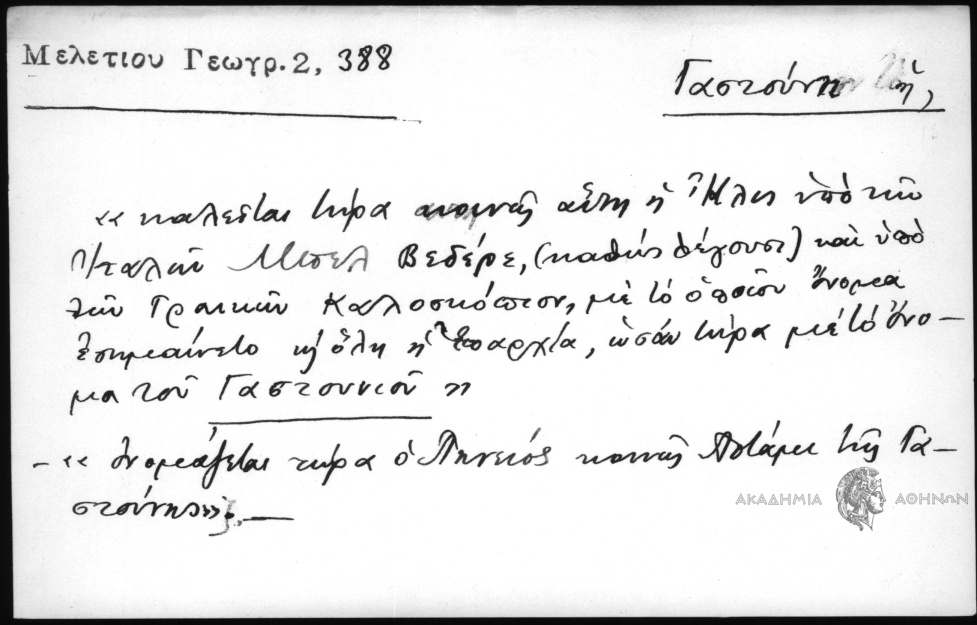 Μελετίου Γεωγρ. 2, 388
Γαστούνη ἡ,
« καλεῖται τώρα κοινῶς αὕτη ἡ Ἦλις ὑπὸ τῶν
Ἰταλῶν Μπελ Βεδέρε, (καθὼς λέγουσι) καὶ ὑπὸ
τῶν Γραικῶν Καλοσκόπιον, μὲ τὸ ὁποῖον ὄνομα
ἐσημαίνετο κ) ὅλη ἡ Ἐπαρχία, ὡσὰν τώρα μὲ τὸ ὄνο-
μα τοῦ Γαστουνιοῦ »
- « ὀνομάζεται τώρα ὁ Πηνειός κοινῶς Ποτάμι τῆς Γα-
στούνης». -
ΑΚΑΔΗΜΙΑ ΑΘΗΝΩΝ